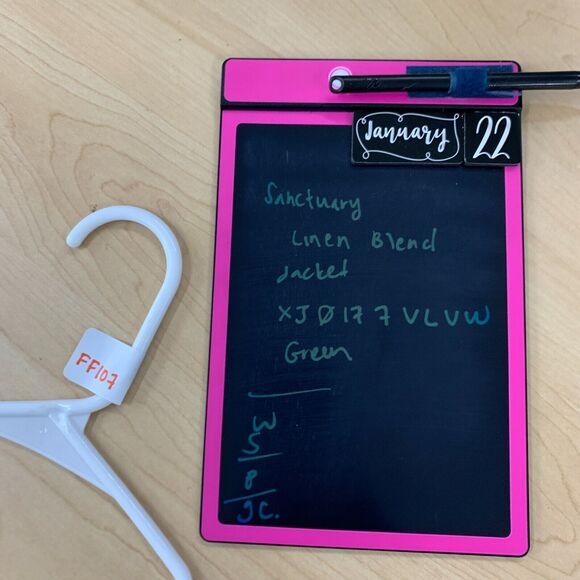 January 22
Sanctuary
Linen Blend
Jacket
XJ Ø 17 7 VLVW
Green
FF107